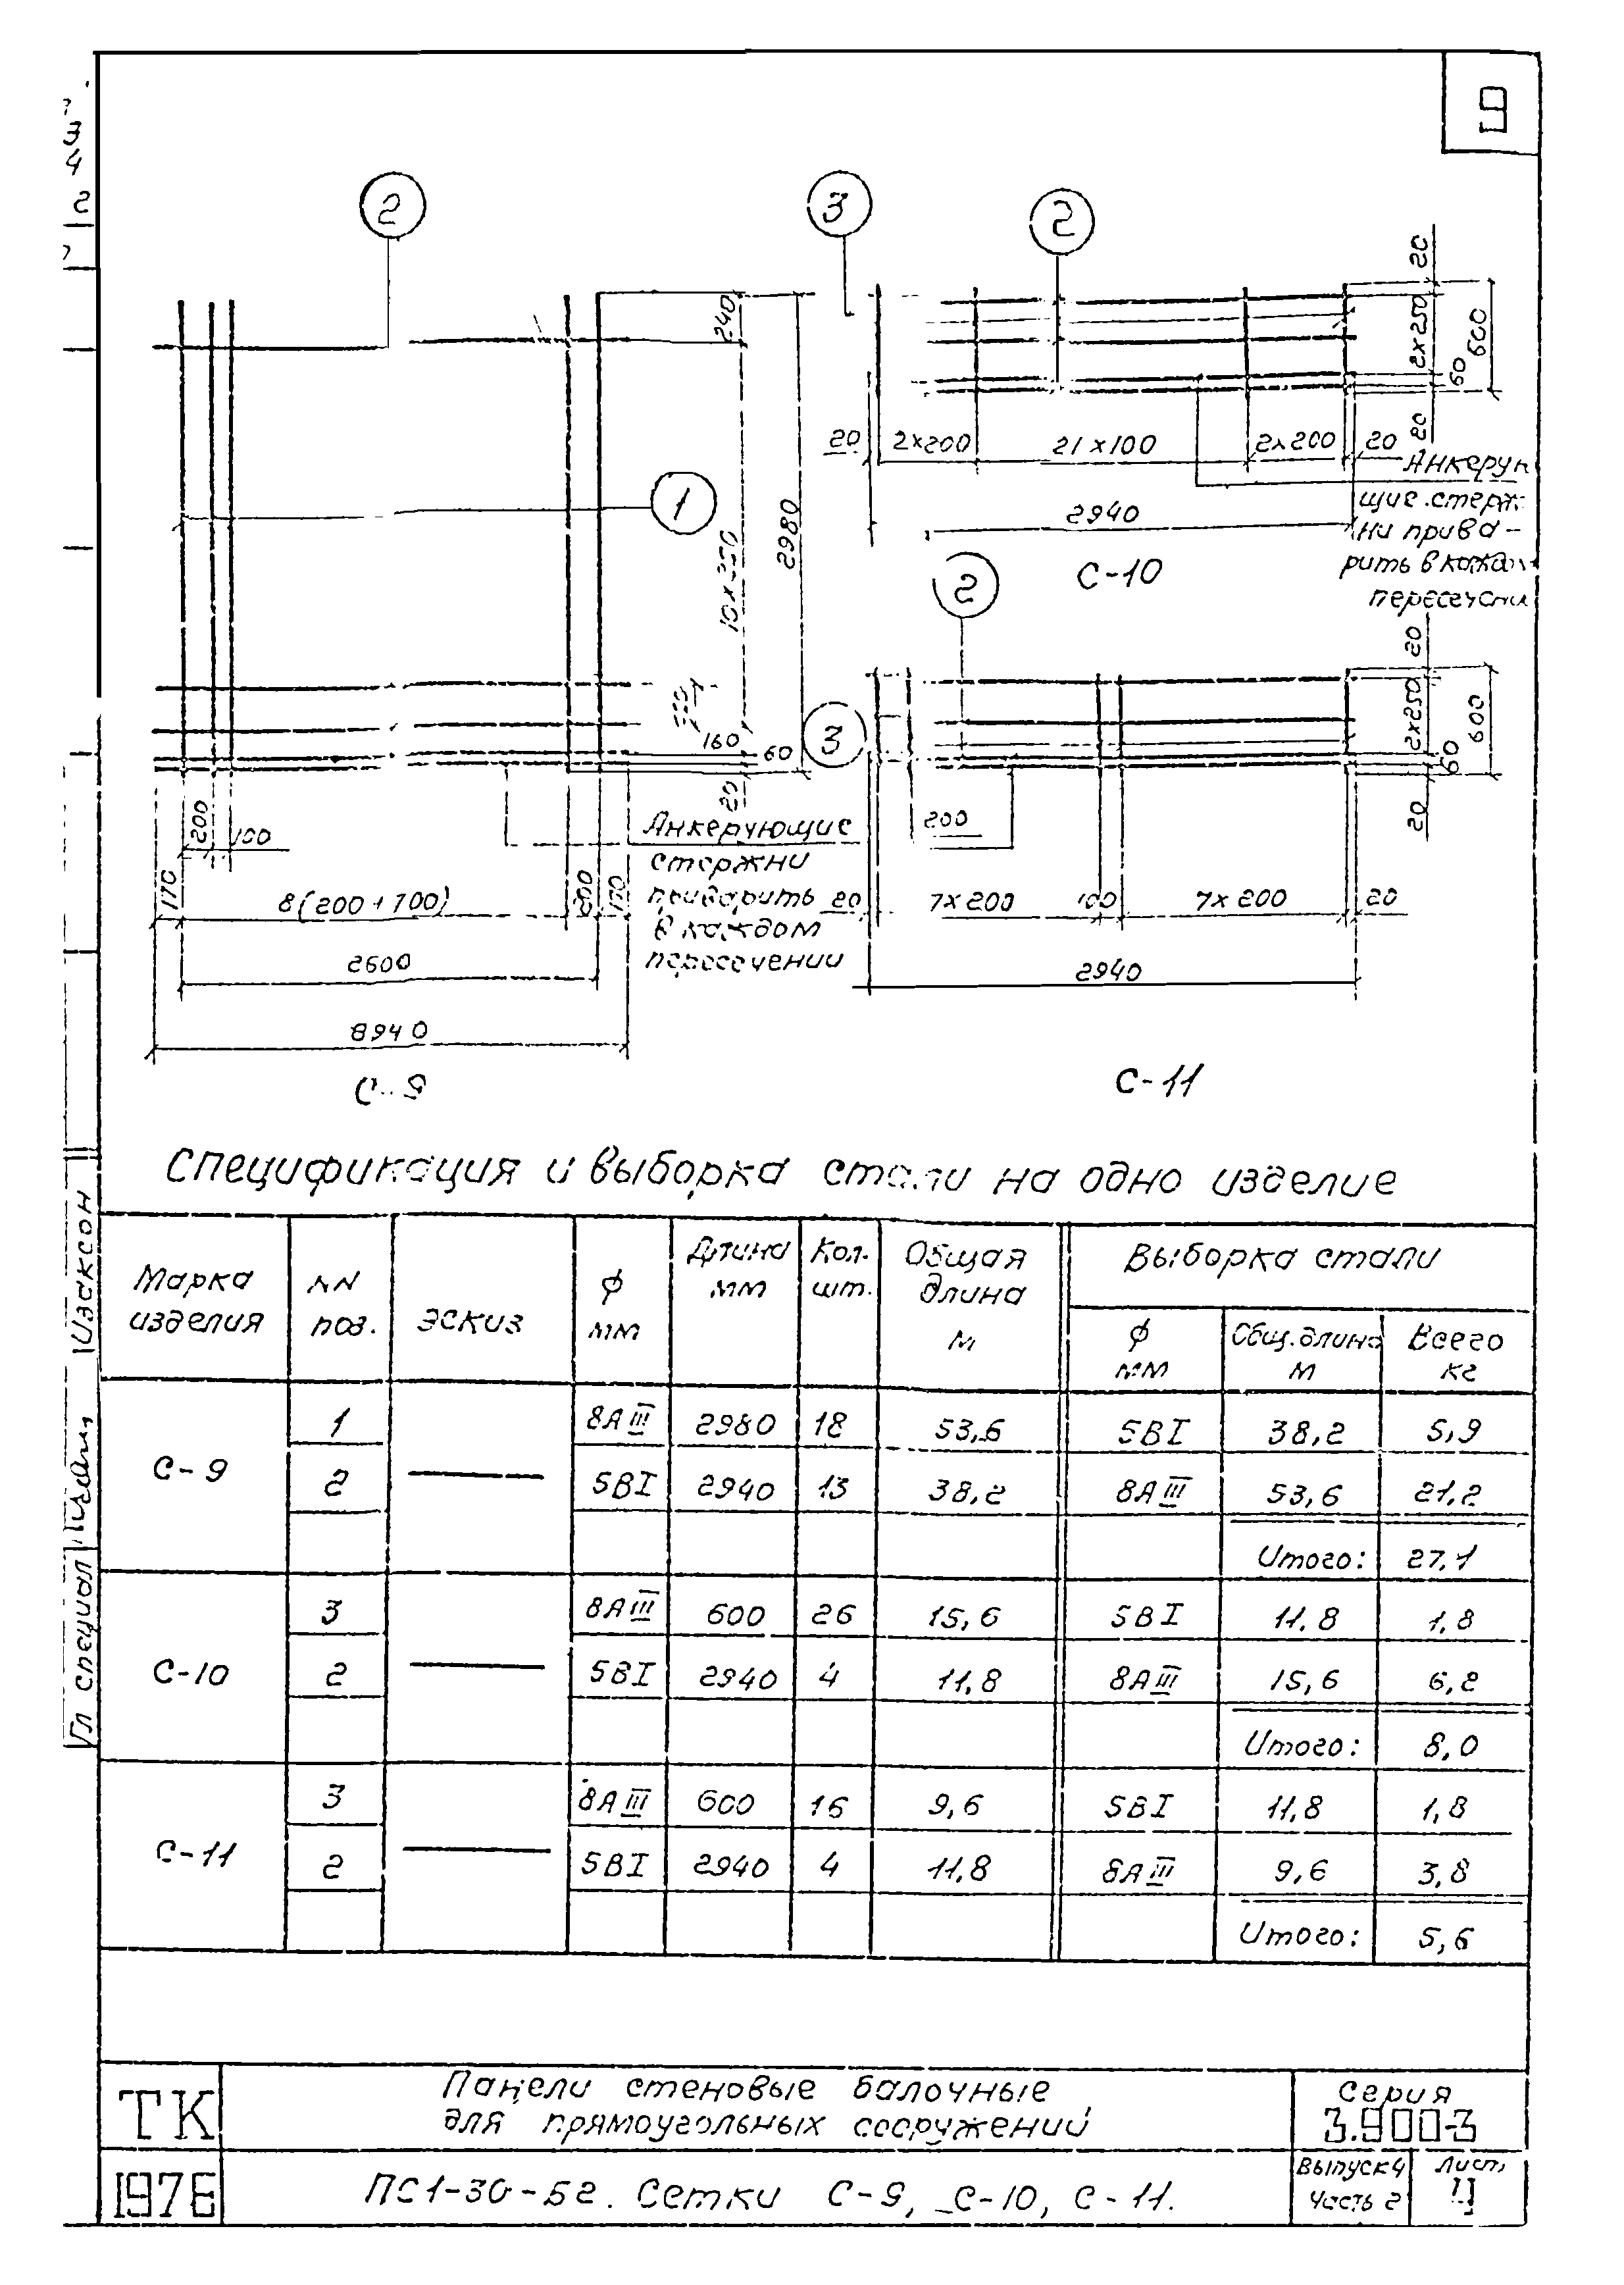 9
3
4
2
2
3
2
240
2980
10×250
1
160
60
20
200
100
170
8(200+100)
200
170
2600
8940
С-9
Анкерующие
стержни
приварить
в каждом
пересечении
20
2×250
60
600
20
20
2×200
21×100
2×200
20
2940
С-10
Анкерую
щие стерж
ни прива-
рить в кажд
пересечени
2
3
20
2×250
60
600
20
200
20
7×200
100
7×200
20
2940
С-11
Спецификация и выборка стали на одно изделие
Марка изделия NN поз. Эскиз ф мм Длина мм Кол. шт. Общая длина м Выборка стали
ф мм Общ. длина м Всего кг
С-9 1 8АIII 2980 18 53,6 5ВI 38,2 5,9
2 5ВI 2940 13 38,2 8АIII 53,6 21,2
Итого: 27,1
С-10 3 8АIII 600 26 15,6 5ВI 11,8 1,8
2 5ВI 2940 4 11,8 8АIII 15,6 6,2
Итого: 8,0
С-11 3 8АIII 600 16 9,6 5ВI 11,8 1,8
2 5ВI 2940 4 11,8 8АIII 9,6 3,8
Итого: 5,6
Гл специал
Изаксон
ТК
1976
Панели стеновые балочные
для прямоугольных сооружений
ПС1-30-Б2. Сетки С-9, С-10, С-11.
Серия
3.900-3
Выпуск 4
Часть 2
Лист